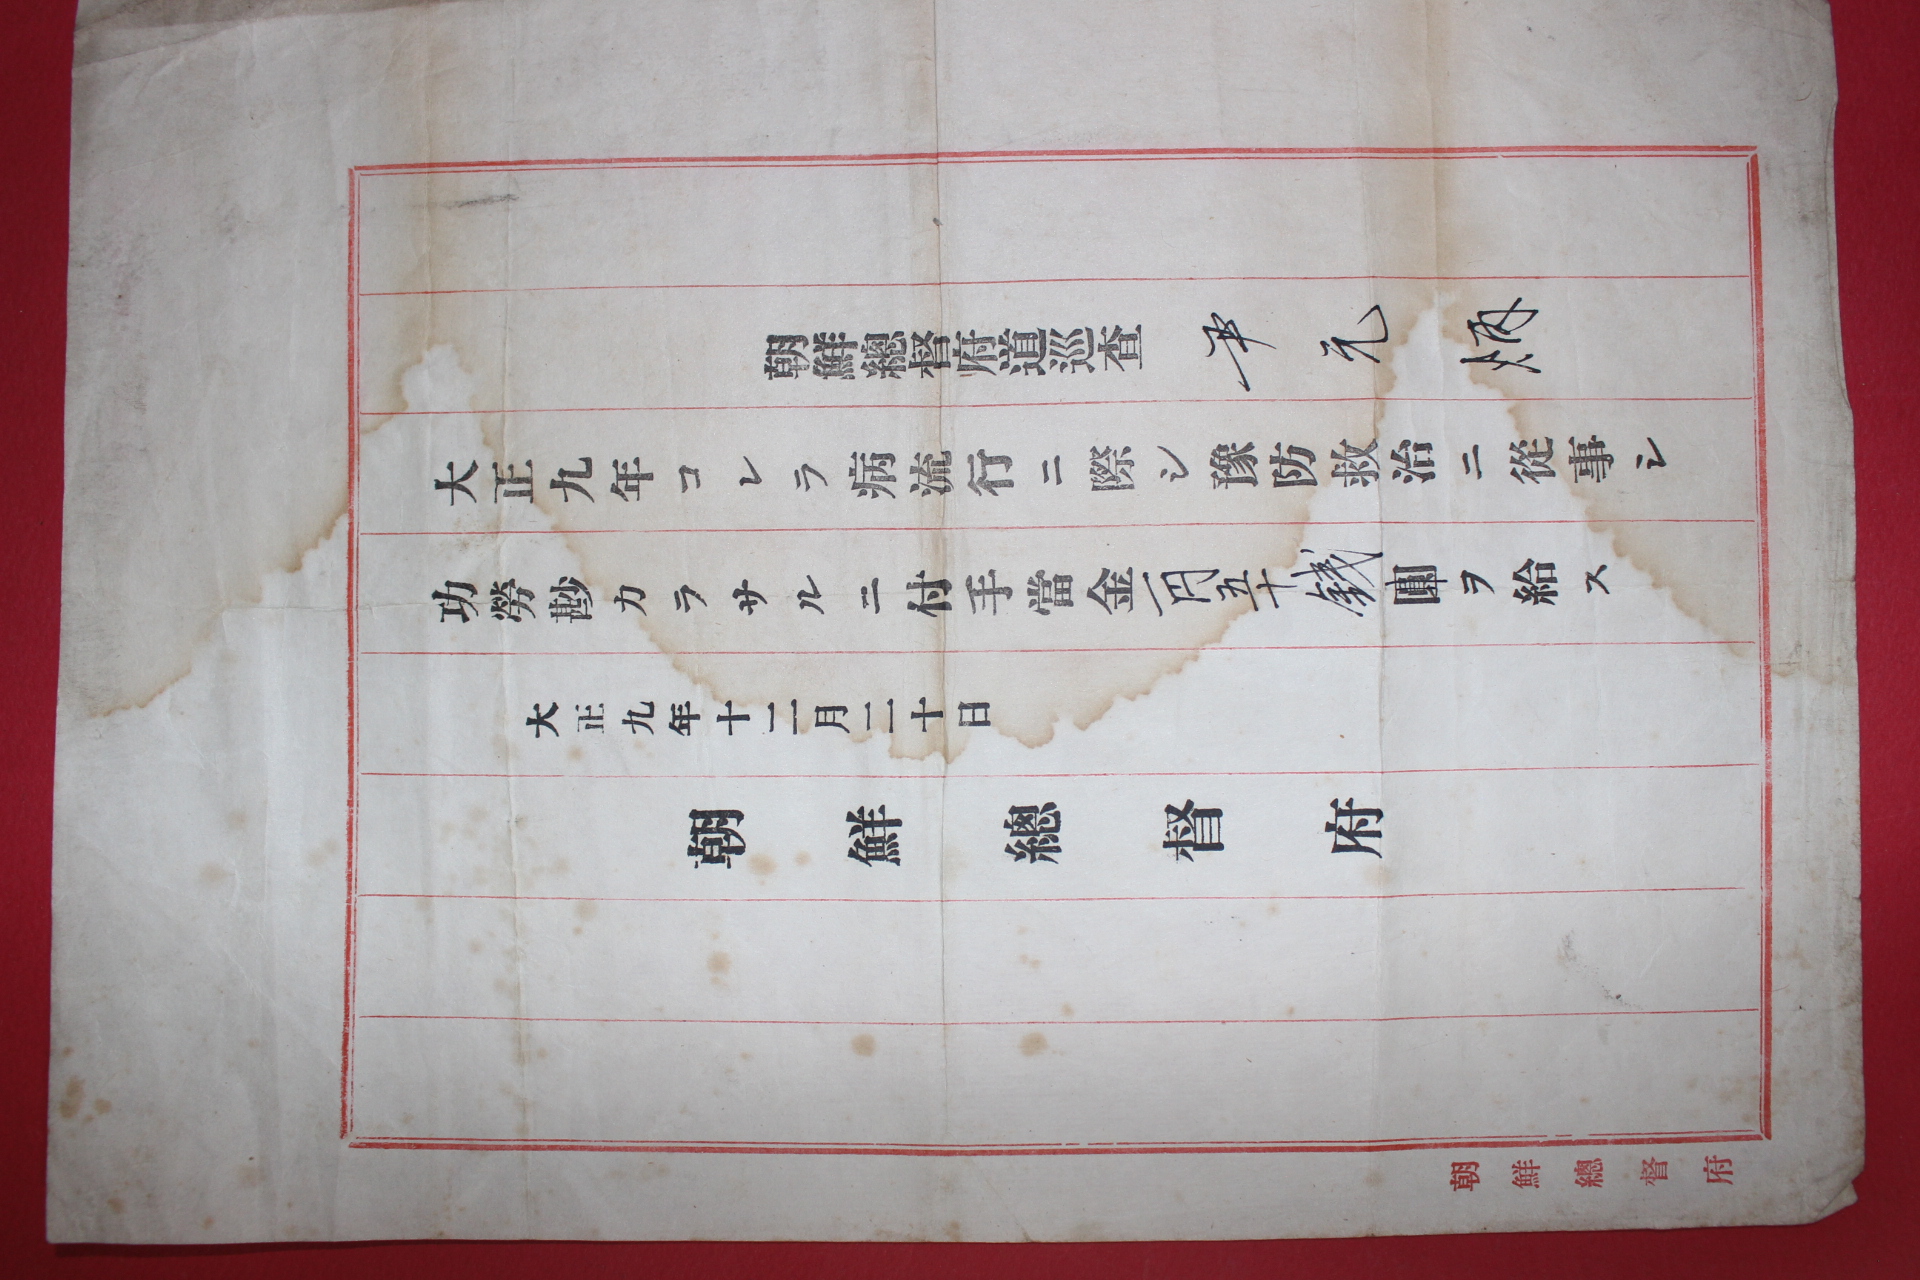 朝鮮總督府道巡査 尹元炳
大正九年コレラ病流行ニ際シ豫防救治ニ從事シ
功勞尠カラサルニ付手當金一円五十銭圓ヲ給ス
大正九年十二月二十日
朝鮮總督府
朝鮮總督府